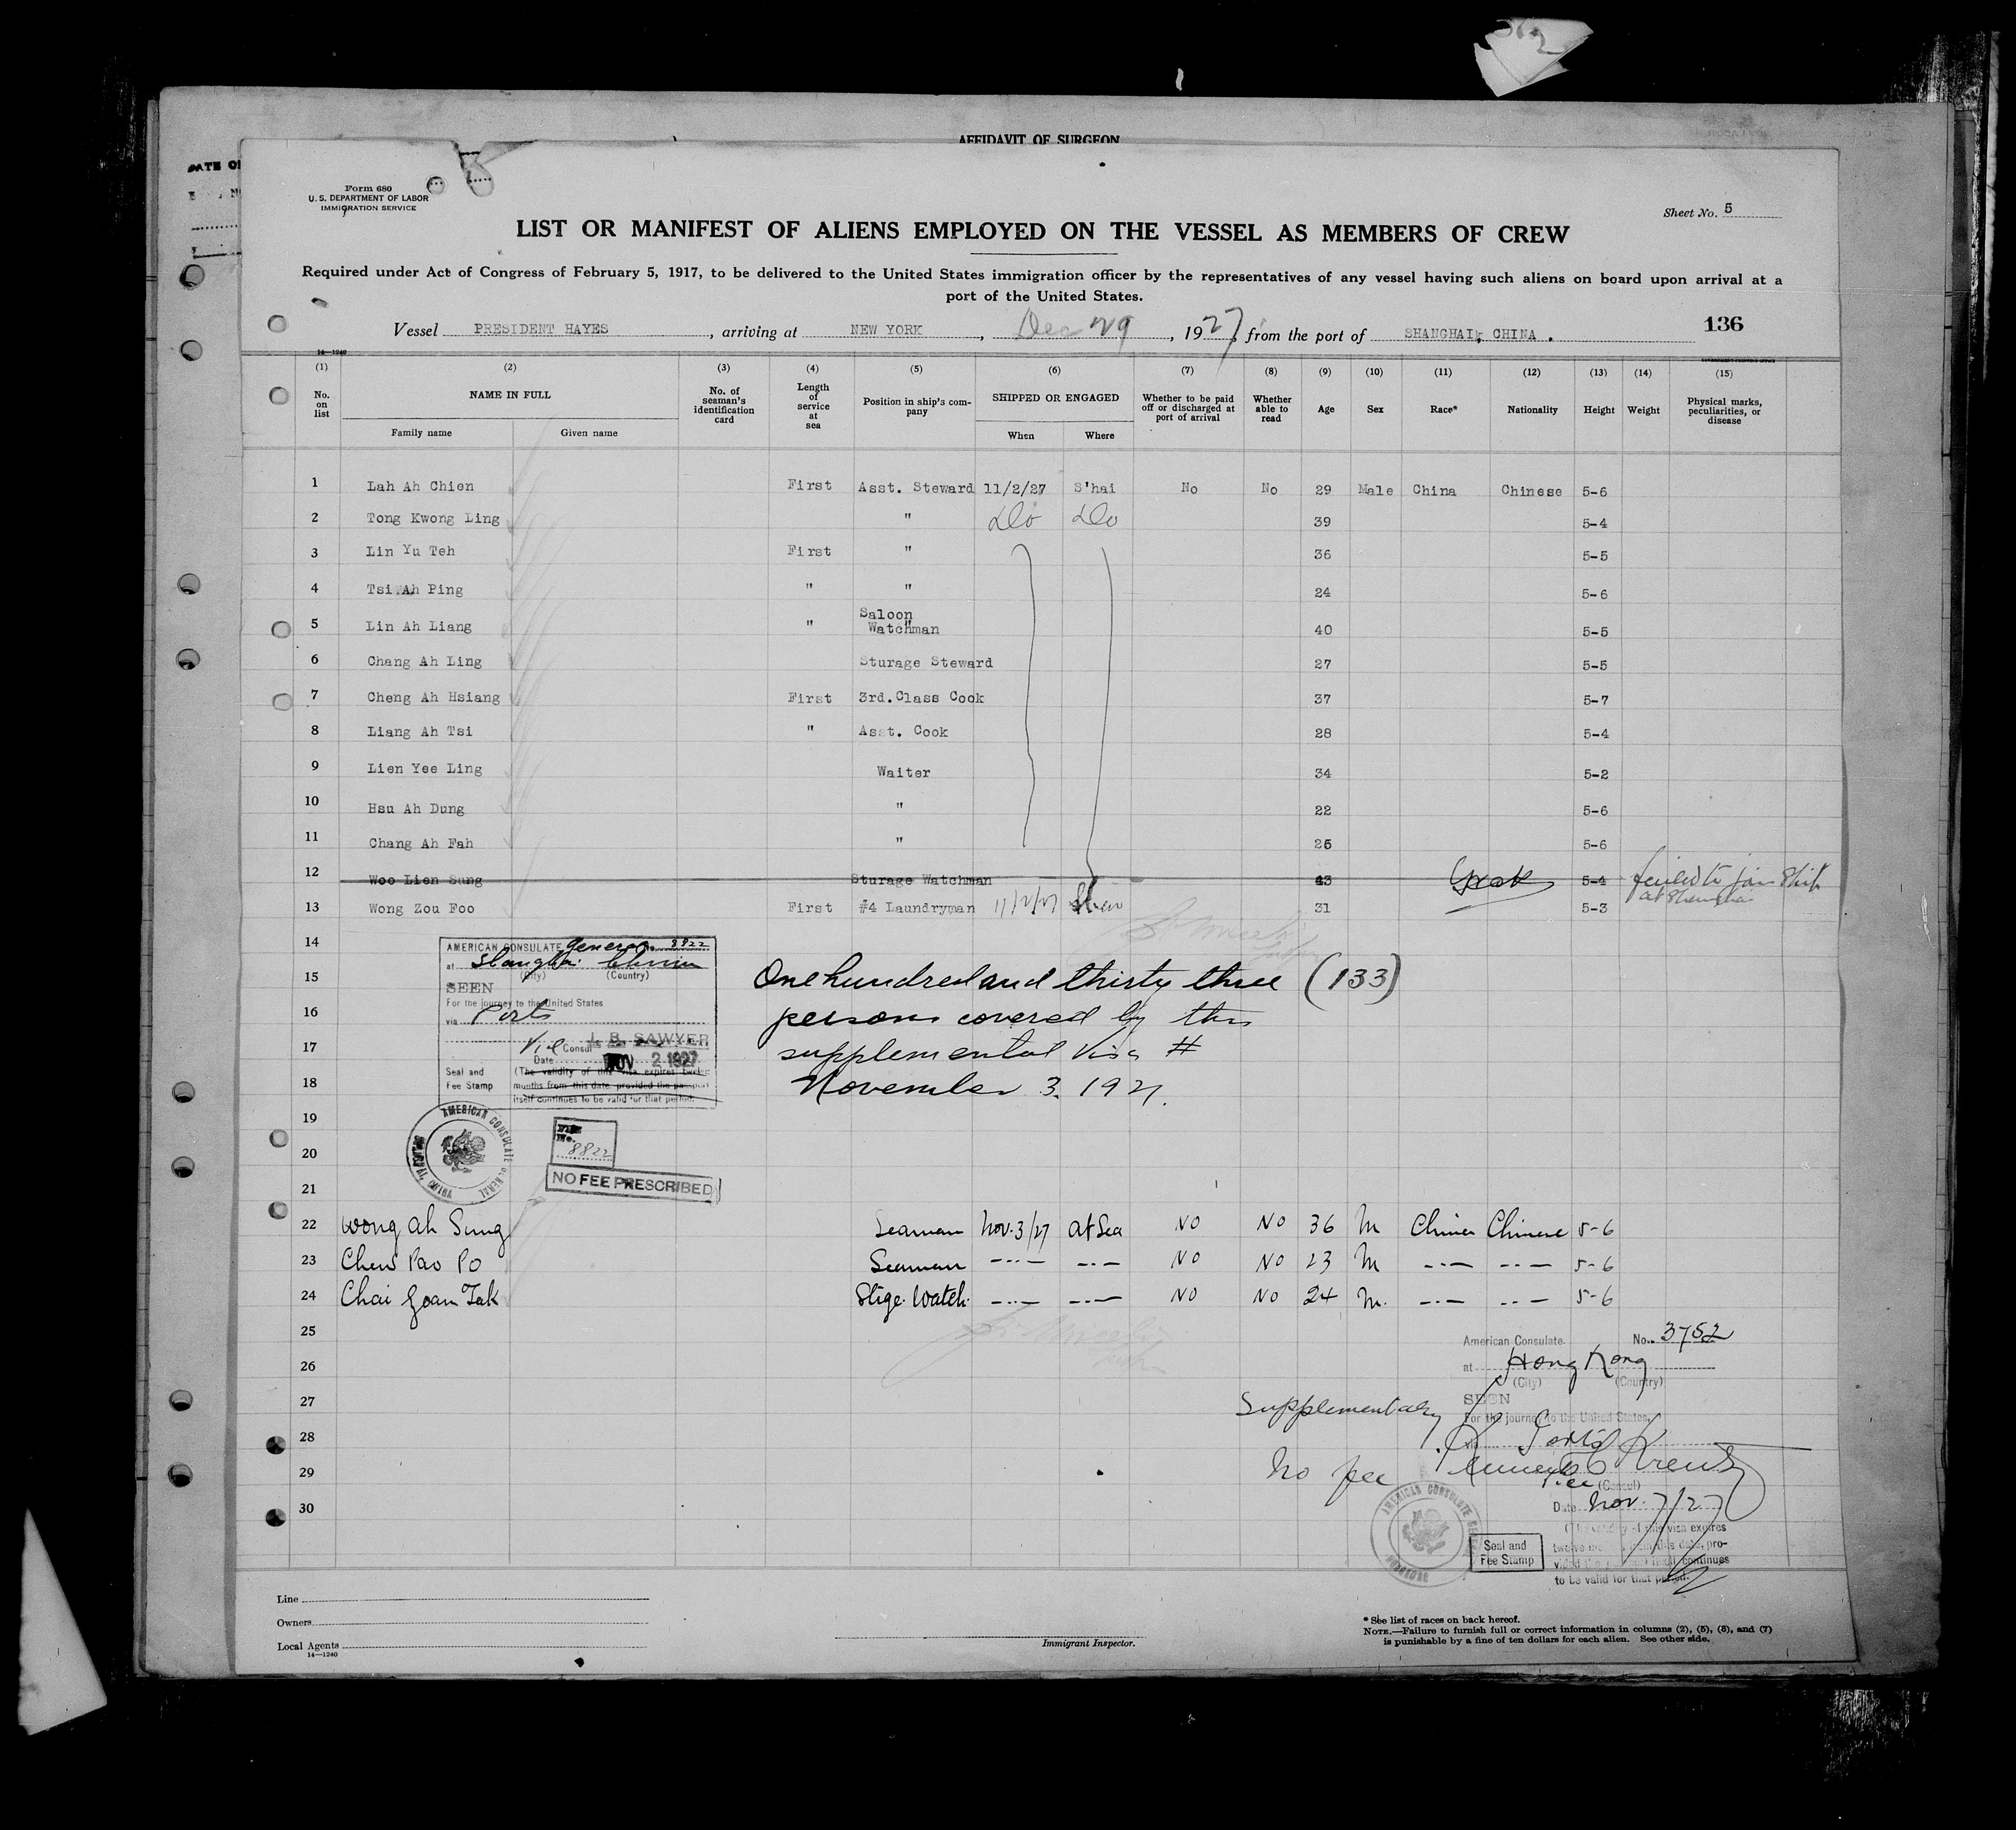 AFFIDAVIT OF SURGEON
Form 680
U. S. DEPARTMENT OF LABOR
IMMIGRATION SERVICE
Sheet No. 5
LIST OR MANIFEST OF ALIENS EMPLOYED ON THE VESSEL AS MEMBERS OF CREW
Required under Act of Congress of February 5, 1917, to be delivered to the United States immigration officer by the representatives of any vessel having such aliens on board upon arrival at a
port of the United States.
Vessel PRESIDENT HAYES, arriving at NEW YORK, Dec 29, 1927, from the port of SHANGHAI, CHINA. 136
14—1240
(1) (2) (3) (4) (5) (6) (7) (8) (9) (10) (11) (12) (13) (14) (15)
No. on list NAME IN FULL Family name Given name No. of seaman's identification card Length of service at sea Position in ship's company SHIPPED OR ENGAGED When Where Whether to be paid off or discharged at port of arrival Whether able to read Age Sex Race* Nationality Height Weight Physical marks, peculiarities, or disease
1 Lah Ah Chien First Asst. Steward 11/2/27 S'hai No No 29 Male China Chinese 5-6
2 Tong Kwong Ling " Do Do 39 5-4
3 Lin Yu Teh First " 36 5-5
4 Tsi Ah Ping " " 24 5-6
5 Lin Ah Liang " Saloon Watchman 40 5-5
6 Chang Ah Ling Sturage Steward 27 5-5
7 Cheng Ah Hsiang First 3rd.Class Cook 37 5-7
8 Liang Ah Tsi " Asst. Cook 28 5-4
9 Lien Yee Ling Waiter 34 5-2
10 Hsu Ah Dung " 22 5-6
11 Chang Ah Fah " 26 5-6
12 Woo Lien Sung Sturage Watchman 43 5-4 failed to join Ship at Shanghai
13 Wong Zou Foo First #4 Laundryman 11/2/27 S'hai 31 5-3
14
15
16
17
18
19
20
21
AMERICAN CONSULATE General No. 8822
at Shanghai China
(City) (Country)
SEEN
For the journey to the United States
via Ports
Vice Consul J. B. SAWYER
Date NOV 2 1927
Seal and
Fee Stamp
(The validity of this visa expires twelve
months from this date, provided the passport
itself continues to be valid for that period.
One hundred and thirty three (133)
persons covered by this
supplemental Visa #
November 3. 1927.
AMERICAN CONSULATE GENERAL
SHANGHAI, CHINA
No. 8822
NO FEE PRESCRIBED
22 Wong ah Sung Seaman Nov. 3/27 at Sea NO NO 36 M China Chinese 5-6
23 Chew Pao Po Seaman -..- -..- NO NO 23 M -..- -..- 5-6
24 Chai Goan Tak Stige. Watch. -..- -..- NO NO 24 M. -..- -..- 5-6
25
26
27
28
29
30
American Consulate No. 3752
at Hong Kong
(City) (Country)
SEEN
Supplementary
For the journey to the United States,
via Ports
No fee
Vice (Consul)
Date Nov. 7/27
(The validity of this visa expires
twelve months from this date, provided the continues
to be valid for that period.
AMERICAN CONSULATE GENERAL
HONGKONG
Seal and
Fee Stamp
Line
Owners
Local Agents
14—1240
Immigrant Inspector.
* See list of races on back hereof.
NOTE.—Failure to furnish full or correct information in columns (2), (5), (6), and (7)
is punishable by a fine of ten dollars for each alien. See other side.